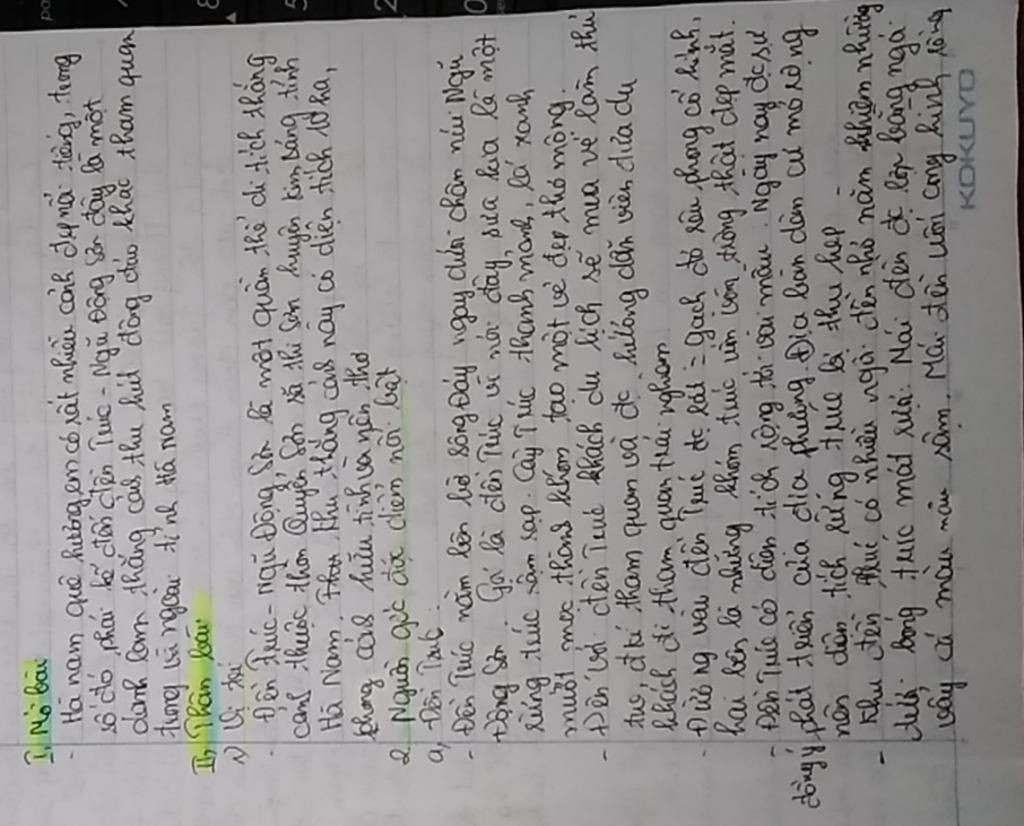 I, Mở bài
- Hà nam quê hương em có rất nhiều cảnh đẹp nổi tiếng, trong
số đó phải kể đến đền Trúc - Ngũ Động Sơn đây là một
danh lam thắng cảnh thu hút đông đảo khác tham quan
trong và ngoài tỉnh Hà nam
II, Thân bài
1/ Vị trí
- Đền Trúc - Ngũ Động Sơn là một quần thể di tích thắng
cảnh thuộc thôn Quyển Sơn xã thi Sơn huyện kim bảng tỉnh
Hà Nam. khu thắng cảnh này có diện tích 10 ha,
phong cảnh hữu tình và nên thơ
2 Nguồn gốc đặc điểm nổi bật
a, Đền Trúc
- Đền Trúc nằm bên bờ sông Đáy ngay dưới chân núi Ngũ
Động Sơn. Gọi là đền Trúc vì nơi đây, xưa kia là một
rừng trúc rậm rạp. Cây Trúc thanh mảnh, lá xanh
mướt mọc thành khóm tạo một vẻ đẹp thơ mộng.
- Đến với đền Trúc khách du lịch sẽ mua vé làm thủ
tục, đi tham quan và đc hướng dẫn viên đưa du
khách đi tham quan trải nghiệm
- Đường vào đền Trúc đc lát = gạch đỏ rêu phong cổ kính,
hai bên là những khóm trúc uốn vồn trông thật đẹp mắt.
- Đền Trúc có diện tích rộng tới vài mẫu. Ngày nay do sự
đồng ý phát triển của địa phương. Địa bàn dân cư mở rộng
nên diện tích rừng trúc bị thu hẹp
- Khu đền Trúc có nhiều ngôi đền nhỏ nằm khiêm nhường
dưới bóng trúc mát rượi. Mái đền đc lợp bằng ngói
vảy cá màu nâu sậm. Mái đền uốn cong hình rồng
KOKUYO